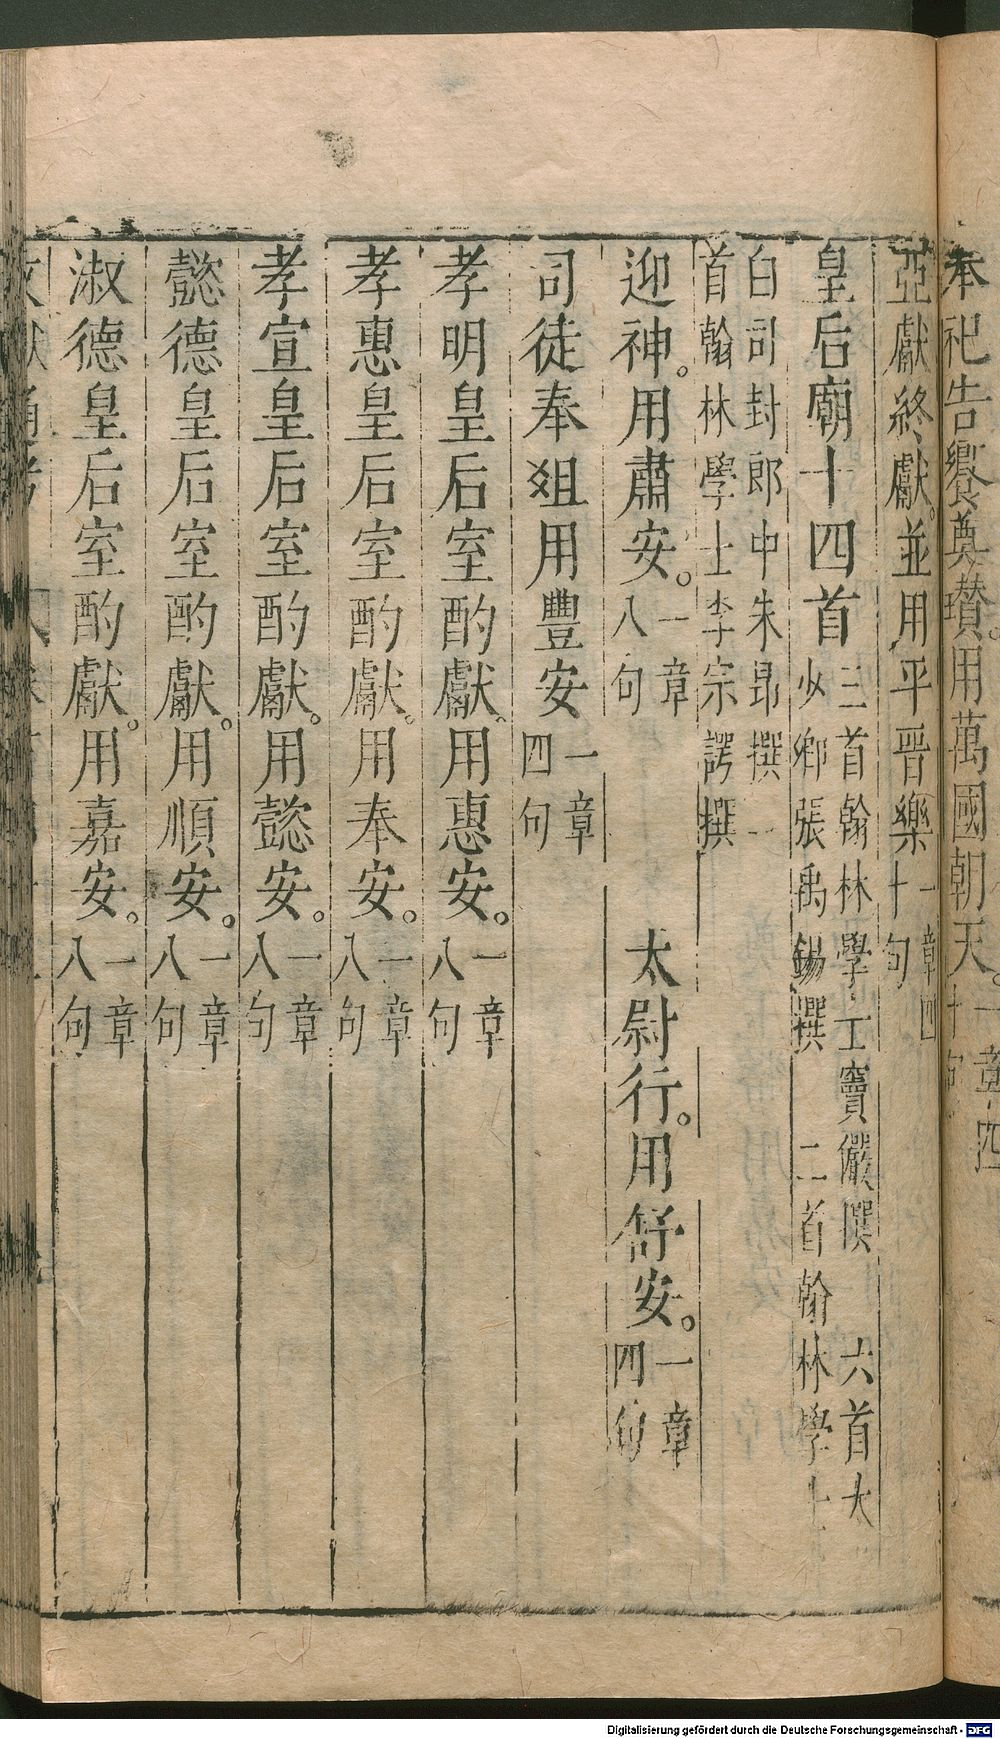 奉祀告饗奠瓚。用萬國朝天。一章四十句
亞獻終獻。並用平晉樂一章四十句
皇后廟十四首三首翰林學工竇儼撰 六首太少卿張禹錫撰 二首翰林學士
白司封郎中朱昂撰一首翰林學士李宗諤撰
迎神。用肅安。一章八句 太尉行。用舒安。一章四句
司徒奉俎用豐安一章四句
孝明皇后室酌獻。用惠安。一章八句
孝惠皇后室酌獻。用奉安。一章八句
孝宣皇后室酌獻。用懿安。一章八句
懿德皇后室酌獻。用順安。一章八句
淑德皇后室酌獻。用嘉安。一章八句
Digitalisierung gefördert durch die Deutsche Forschungsgemeinschaft - DFG